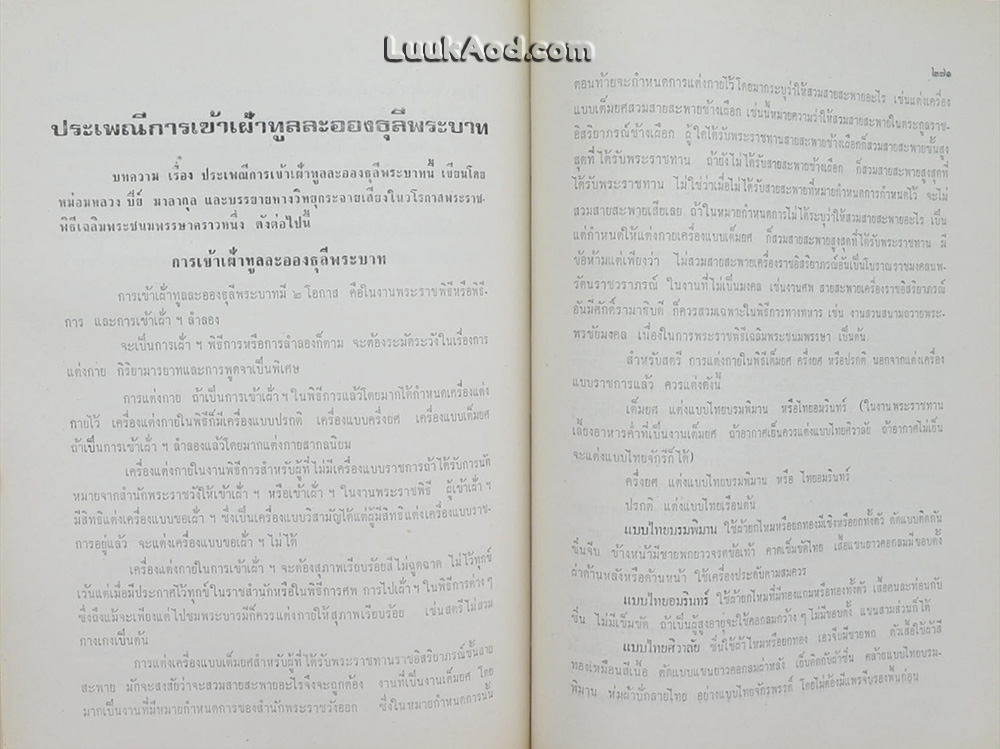 LuukAod.com
ประเพณีการเข้าเฝ้าทูลละอองธุลีพระบาท
บทความ เรื่อง ประเพณีการเข้าเฝ้าทูลละอองธุลีพระบาทนี้ เขียนโดย
หม่อมหลวง ปีย์ มาลากุล และบรรยายทางวิทยุกระจายเสียงในวโรกาสพระราช-
พิธีเฉลิมพระชนมพรรษาคราวหนึ่ง ดังต่อไปนี้
การเข้าเฝ้าทูลละอองธุลีพระบาท
การเข้าเฝ้าทูลละอองธุลีพระบาทมี ๒ โอกาส คือในงานพระราชพิธีหรือพิธี-
การ และการเข้าเฝ้า ฯ ลำลอง
จะเป็นการเฝ้า ฯ พิธีการหรือการลำลองก็ตาม จะต้องระมัดระวังในเรื่องการ
แต่งกาย กิริยามารยาทและการพูดจาเป็นพิเศษ
การแต่งกาย ถ้าเป็นการเข้าเฝ้า ฯ ในพิธีการแล้วโดยมากได้กำหนดเครื่องแต่ง
กายไว้ เครื่องแต่งกายในพิธีก็มีเครื่องแบบปรกติ เครื่องแบบครึ่งยศ เครื่องแบบเต็มยศ
ถ้าเป็นการเข้าเฝ้า ฯ ลำลองแล้วโดยมากแต่งกายสากลนิยม
เครื่องแต่งกายในงานพิธีการสำหรับผู้ที่ไม่มีเครื่องแบบราชการถ้าได้รับการนัด
หมายจากสำนักพระราชวังให้เข้าเฝ้า ฯ หรือเข้าเฝ้า ฯ ในงานพระราชพิธี ผู้เข้าเฝ้า ฯ
มีสิทธิแต่งเครื่องแบบขอเฝ้า ฯ ซึ่งเป็นเครื่องแบบวิสามัญได้แต่ผู้มีสิทธิแต่งเครื่องแบบราช-
การอยู่แล้ว จะแต่งเครื่องแบบขอเฝ้า ฯ ไม่ได้
เครื่องแต่งกายในการเข้าเฝ้า ฯ จะต้องสุภาพเรียบร้อยสีไม่ฉูดฉาด ไม่ไว้ทุกข์
เว้นแต่เมื่อมีประกาศไว้ทุกข์ในราชสำนักหรือในพิธีการศพ การไปเฝ้า ฯ ในพิธีการต่าง ๆ
ซึ่งถึงแม้จะเพียงแต่ไปชมพระบารมีก็ควรแต่งกายให้สุภาพเรียบร้อย เช่นสตรีไม่สวม
กางเกงเป็นต้น
การแต่งเครื่องแบบเต็มยศสำหรับผู้ที่ได้รับพระราชทานราชอิสริยาภรณ์ชั้นสาย
สะพาย มักจะสงสัยว่าจะสวมสายสะพายอะไรจึงจะถูกต้อง งานที่เป็นงานเต็มยศ โดย
มากเป็นงานที่มีหมายกำหนดการของสำนักพระราชวังออก ซึ่งในหมายกำหนดการนั้น
๒๗๑
ตอนท้ายจะกำหนดการแต่งกายไว้โดยมากระบุว่าให้สวมสายสะพายอะไร เช่นแต่งเครื่อง
แบบเต็มยศสวมสายสะพายช้างเผือก เช่นนี้หมายความว่าให้สวมสายสะพายในตระกูลราช-
อิสริยาภรณ์ช้างเผือก ผู้ใดได้รับพระราชทานสายสะพายช้างเผือกก็สวมสายสะพายชั้นสูง
สุดที่ได้รับพระราชทาน ถ้ายังไม่ได้รับสายสะพายช้างเผือก ก็สวมสายสะพายสูงสุดที่
ได้รับพระราชทาน ไม่ใช่ว่าเมื่อไม่ได้รับสายสะพายที่หมายกำหนดการกำหนดไว้ จะไม่
สวมสายสะพายเสียเลย ถ้าในหมายกำหนดการไม่ได้ระบุว่าให้สวมสายสะพายอะไร เป็น
แต่กำหนดให้แต่งกายเครื่องแบบเต็มยศ ก็สวมสายสะพายสูงสุดที่ได้รับพระราชทาน มี
ข้อห้ามแต่เพียงว่า ไม่สวมสายสะพายเครื่องราชอิสริยาภรณ์อันเป็นโบราณราชมงคลนพ-
รัตนราชวราภรณ์ ในงานที่ไม่เป็นมงคล เช่นงานศพ สายสะพายเครื่องราชอิสริยาภรณ์
อันมีศักดิ์รามาธิบดี ก็ควรสวมเฉพาะในพิธีการทางทหาร เช่น งานสวนสนามถวายพระ-
พรชัยมงคล เนื่องในการพระราชพิธีเฉลิมพระชนมพรรษา เป็นต้น
สำหรับสตรี การแต่งกายในพิธีเต็มยศ ครึ่งยศ หรือปรกติ นอกจากแต่งเครื่อง
แบบราชการแล้ว ควรแต่งดังนี้
เต็มยศ แต่งแบบไทยบรมพิมาน หรือไทยอมรินทร์ (ในงานพระราชทาน
เลี้ยงอาหารค่ำที่เป็นงานเต็มยศ ถ้าอากาศเย็นควรแต่งแบบไทยศิวาลัย ถ้าอากาศไม่เย็น
จะแต่งแบบไทยจักรีก็ได้)
ครึ่งยศ แต่งแบบไทยบรมพิมาน หรือ ไทยอมรินทร์
ปรกติ แต่งแบบไทยเรือนต้น
แบบไทยบรมพิมาน ใช้ผ้ายกไหมหรือยกทองมีเชิงหรือยกทั้งตัว ตัดแบบติดกัน
ซิ่นจีบ ข้างหน้ามีชายพกยาวจรดข้อเท้า คาดเข็มขัดไทย เสื้อแขนยาวคอกลมมีขอบตั้ง
ผ่าด้านหลังหรือด้านหน้า ใช้เครื่องประดับตามสมควร
แบบไทยอมรินทร์ ใช้ผ้ายกไหมที่มีทองแกมหรือทองทั้งตัว เสื้อคนละท่อนกับ
ซิ่น ไม่มีเข็มขัด ถ้าเป็นผู้สูงอายุจะใช้คอกลมกว้าง ๆ ไม่มีขอบตั้ง แขนสามส่วนก็ได้
แบบไทยศิวาลัย ซิ่นใช้ผ้าไหมหรือยกทอง เอวจีบมีชายพก ตัวเสื้อใช้ผ้าสี
ทองเหมือนสีเนื้อ ตัดแบบแขนยาวคอกลมผ่าหลัง เย็บติดกับผ้าซิ่น คล้ายแบบไทยบรม-
พิมาน ห่มผ้าปักลายไทย อย่างแบบไทยจักรพรรดิ์ โดยไม่ต้องมีแพรจีบรองพื้นก่อน